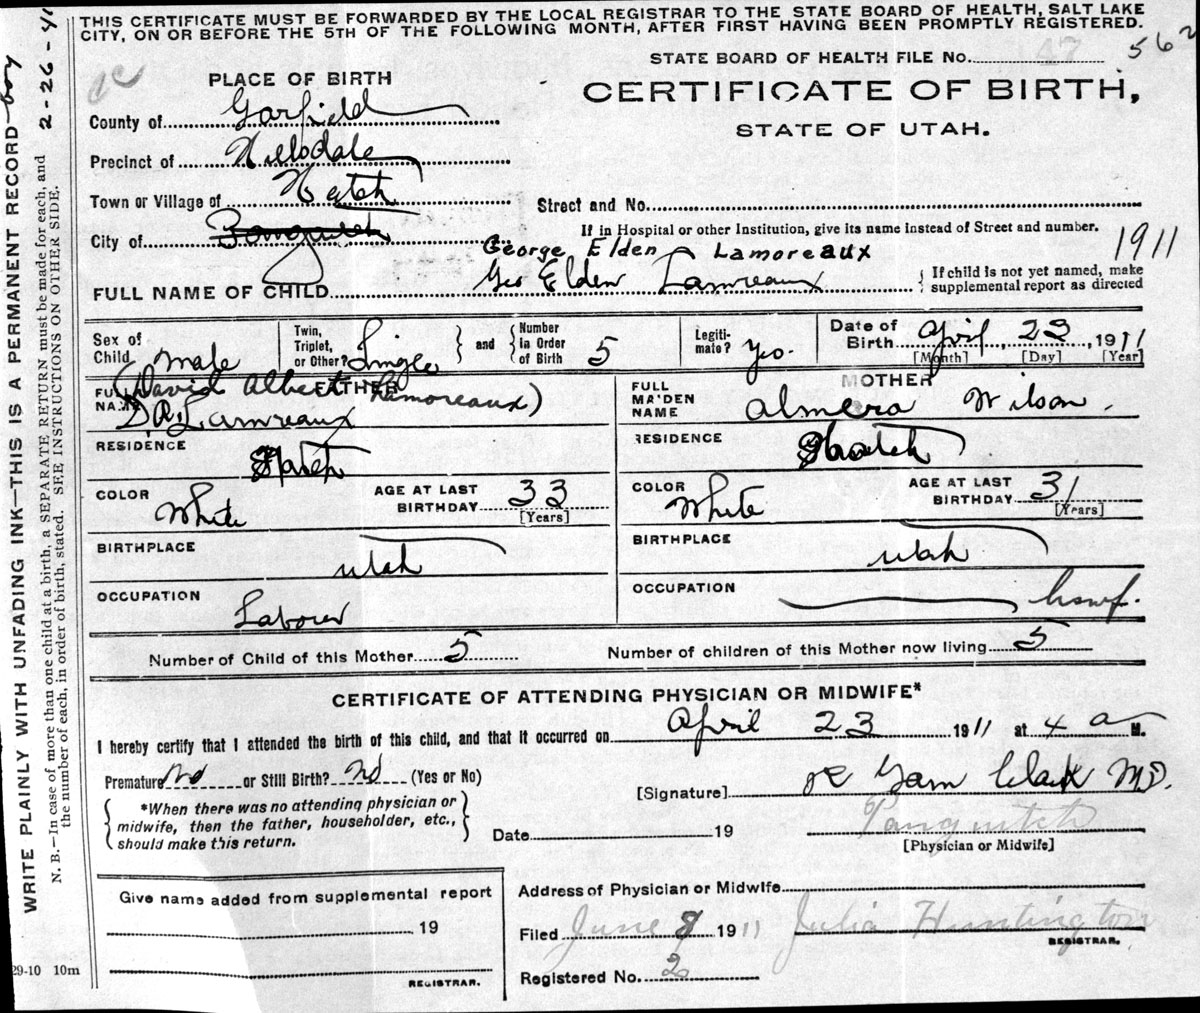 THIS CERTIFICATE MUST BE FORWARDED BY THE LOCAL REGISTRAR TO THE STATE BOARD OF HEALTH, SALT LAKE
CITY, ON OR BEFORE THE 5TH OF THE FOLLOWING MONTH, AFTER FIRST HAVING BEEN PROMPTLY REGISTERED.
WRITE PLAINLY WITH UNFADING INK—THIS IS A PERMANENT RECORD
N. B.—In case of more than one child at a birth, a SEPARATE RETURN must be made for each, and
the number of each, in order of birth, stated. SEE INSTRUCTIONS ON OTHER SIDE.
2-26-41
STATE BOARD OF HEALTH FILE No. 147 562
PLACE OF BIRTH
CERTIFICATE OF BIRTH,
STATE OF UTAH.
County of Garfield
Precinct of Hillsdale
Town or Village of Hatch
Street and No.
City of Panguitch
If in Hospital or other Institution, give its name instead of Street and number.
George Elden Lamoreaux 1911
FULL NAME OF CHILD Geo Elden Lamreaux
If child is not yet named, make
supplemental report as directed
Sex of Child male
Twin, Triplet, or Other? Single
and Number in Order of Birth 5
Legitimate? Yes.
Date of Birth April 23 1911
[Month] [Day] [Year]
FATHER
FULL NAME (David Albert Lamoreaux)
D. A. Lamreaux
MOTHER
FULL MAIDEN NAME Almera Wilson.
RESIDENCE Hatch
RESIDENCE Hatch
COLOR White
AGE AT LAST BIRTHDAY 33
[Years]
COLOR White
AGE AT LAST BIRTHDAY 31
[Years]
BIRTHPLACE Utah
BIRTHPLACE Utah
OCCUPATION Labour
OCCUPATION hswf.
Number of Child of this Mother 5
Number of children of this Mother now living 5
CERTIFICATE OF ATTENDING PHYSICIAN OR MIDWIFE*
I hereby certify that I attended the birth of this child, and that it occurred on April 23 1911 at 4 a M.
Premature No or Still Birth? No (Yes or No)
[Signature] R Garn Clark M.D.
*When there was no attending physician or
midwife, then the father, householder, etc.,
should make this return.
Date 19
Panguitch
[Physician or Midwife]
Give name added from supplemental report
19
REGISTRAR.
Address of Physician or Midwife
Filed June 8 1911 Julia Huntington
REGISTRAR.
Registered No. 2
29-10 10m